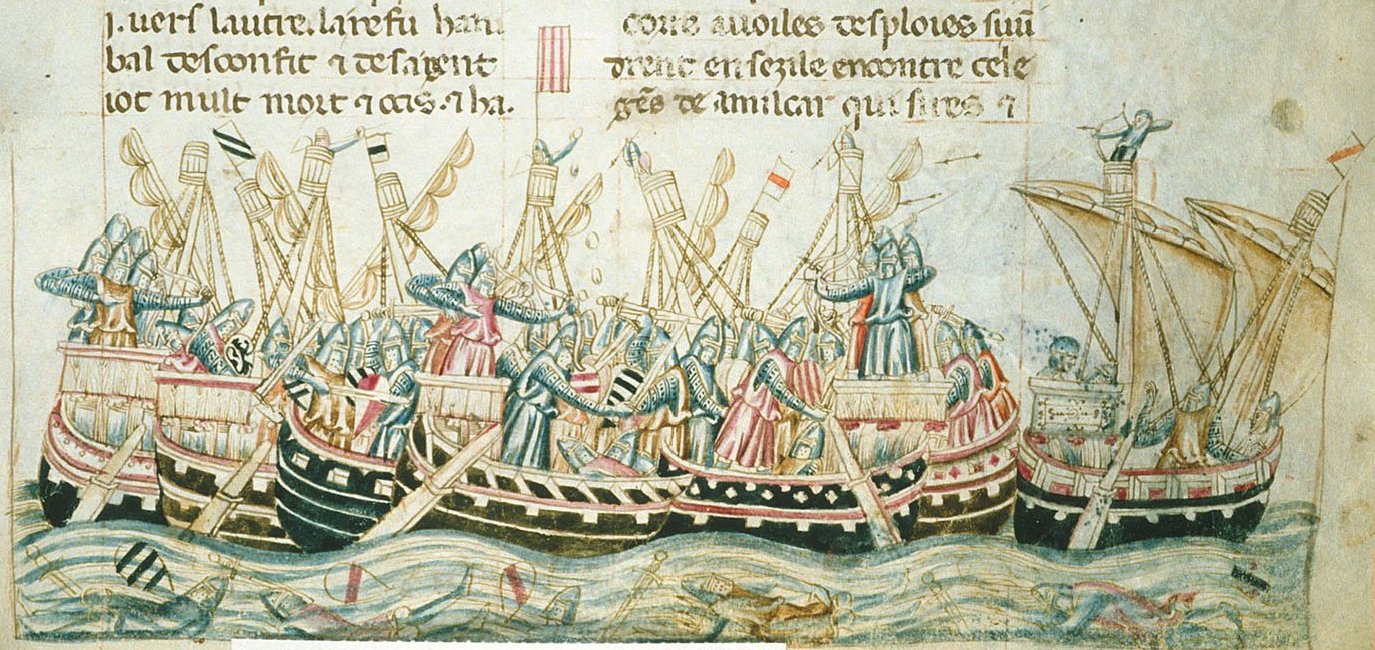 j. uers lautre. la refu hani
bal desconfit ⁊ de sa gent
iot mult mort ⁊ ocis. ⁊ ha.
a uoiles desploies
drent en sezile encontre cele
gēs de amilcar qui ⁊